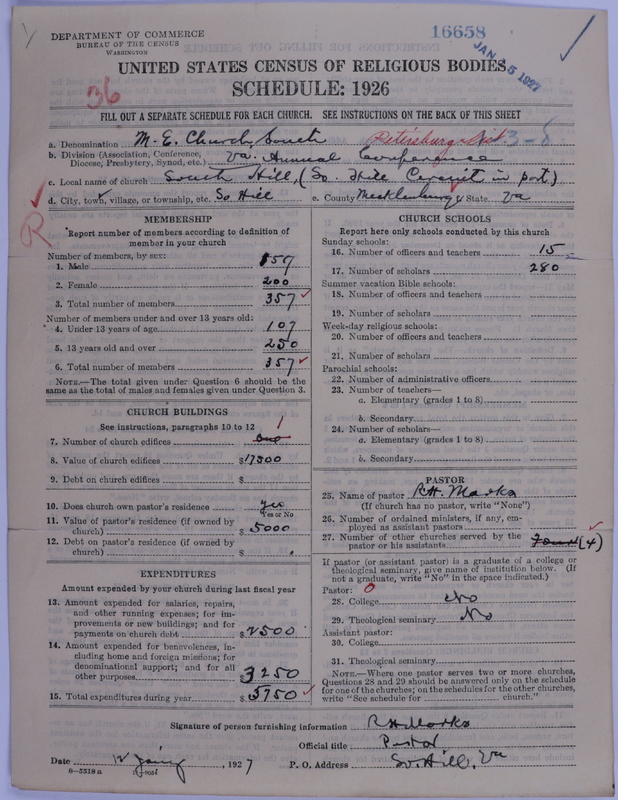 16658
JAN 15 1927
DEPARTMENT OF COMMERCE
BUREAU OF THE CENSUS
WASHINGTON
UNITED STATES CENSUS OF RELIGIOUS BODIES
SCHEDULE: 1926
36
FILL OUT A SEPARATE SCHEDULE FOR EACH CHURCH. SEE INSTRUCTIONS ON THE BACK OF THIS SHEET
a. Denomination M. E. Church, South Petersburg Dist 3-8
b. Division (Association, Conference, Diocese, Presbytery, Synod, etc.) Va. Annual Conference
c. Local name of church South Hill, (So. Hill Circuit in part)
d. City, town, village, or township, etc. So Hill e. County Mecklenburg State Va
R
MEMBERSHIP
Report number of members according to definition of
member in your church
Number of members, by sex:
1. Male 157
2. Female 200
3. Total number of members 357
Number of members under and over 13 years old:
4. Under 13 years of age 107
5. 13 years old and over 250
6. Total number of members 357
NOTE.—The total given under Question 6 should be the
same as the total of males and females given under Question 3.
CHURCH BUILDINGS
See instructions, paragraphs 10 to 12
7. Number of church edifices One 1
8. Value of church edifices $17500
9. Debt on church edifices $
10. Does church own pastor's residence yes
Yes or No
11. Value of pastor's residence (if owned by
church) $5000
12. Debt on pastor's residence (if owned by
church) $
EXPENDITURES
Amount expended by your church during last fiscal year
13. Amount expended for salaries, repairs,
and other running expenses; for im-
provements or new buildings; and for
payments on church debt $2500
14. Amount expended for benevolences, in-
cluding home and foreign missions; for
denominational support; and for all
other purposes 3250
15. Total expenditures during year $5750
CHURCH SCHOOLS
Report here only schools conducted by this church
Sunday schools:
16. Number of officers and teachers 15
17. Number of scholars 280
Summer vacation Bible schools:
18. Number of officers and teachers
19. Number of scholars
Week-day religious schools:
20. Number of officers and teachers
21. Number of scholars
Parochial schools:
22. Number of administrative officers
23. Number of teachers—
a. Elementary (grades 1 to 8)
b. Secondary
24. Number of scholars—
a. Elementary (grades 1 to 8)
b. Secondary
PASTOR
25. Name of pastor R.H. Marks
(If church has no pastor, write "None")
26. Number of ordained ministers, if any, em-
ployed as assistant pastors
27. Number of other churches served by the
pastor or his assistants Four (4)
If pastor (or assistant pastor) is a graduate of a college or
theological seminary, give name of institution below. (If
not a graduate, write "No" in the space indicated.)
Pastor: 0
28. College No
29. Theological seminary No
Assistant pastor:
30. College
31. Theological seminary
NOTE.—Where one pastor serves two or more churches,
Questions 28 and 29 should be answered only on the schedule
for one of the churches; on the schedules for the other churches,
write "See schedule for church."
Signature of person furnishing information R H Marks
Official title Pastor
Date 12 Jany, 1927 P. O. Address So. Hill, Va
8—5518 a